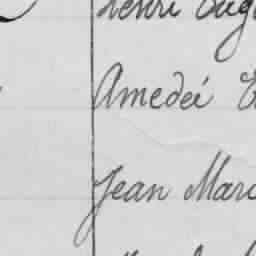 Henri Eug
Amedeé
Jean Marc